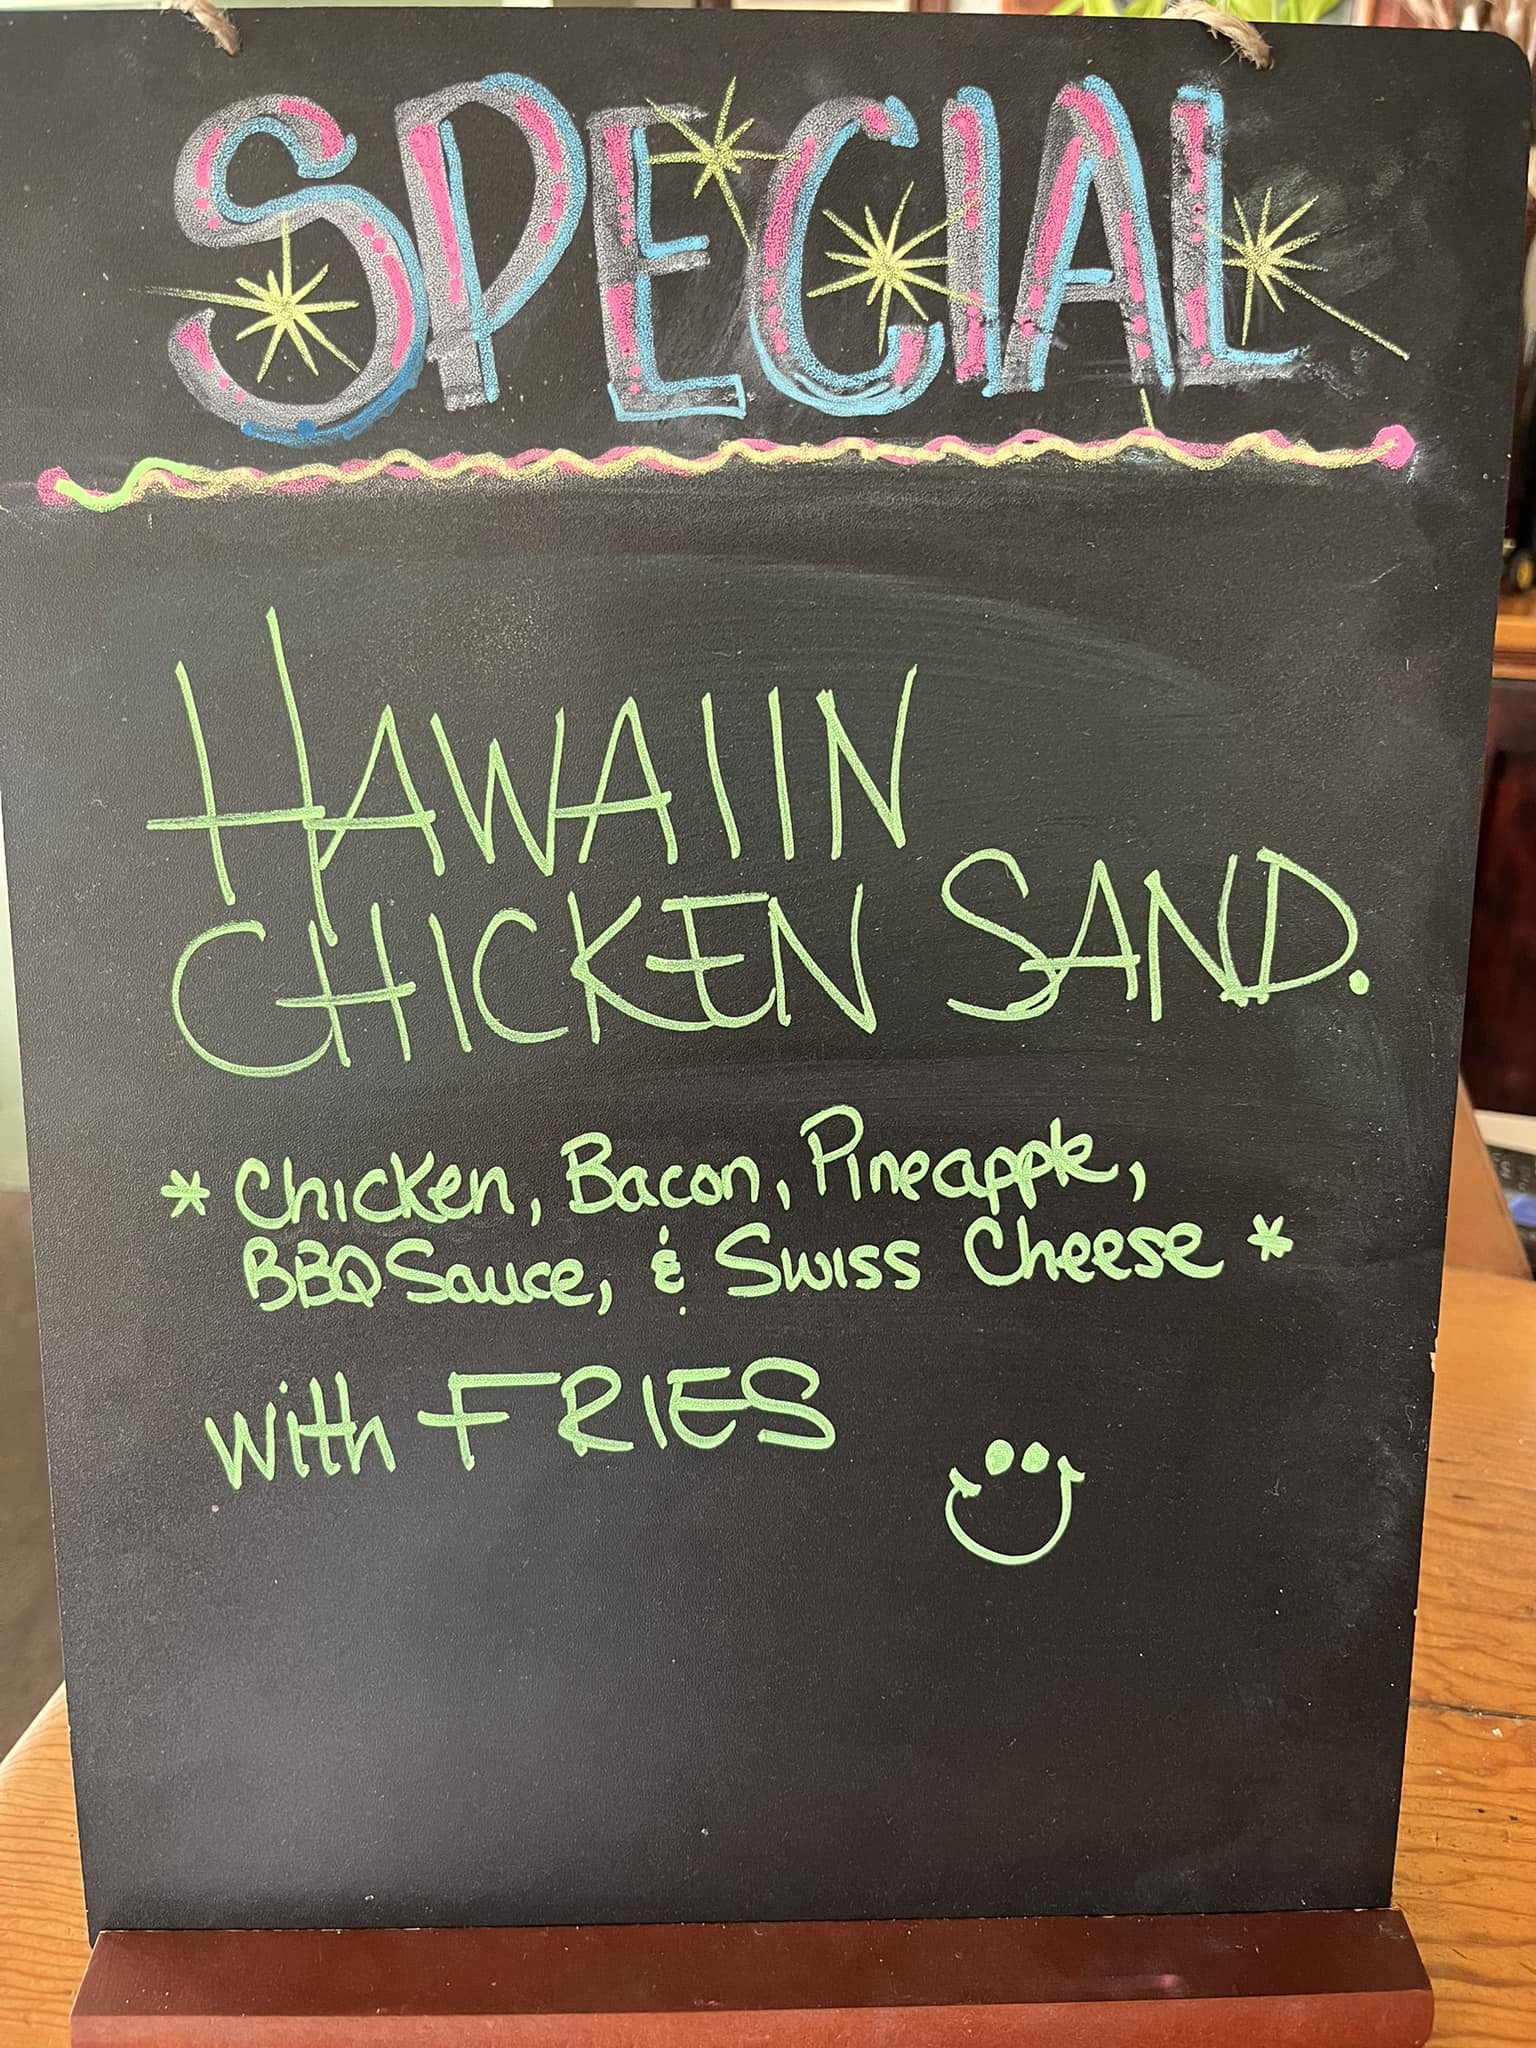 SPECIAL
HAWAIIN
CHICKEN SAND.
* Chicken, Bacon, Pineapple,
BBQ Sauce, & Swiss Cheese *
with FRIES